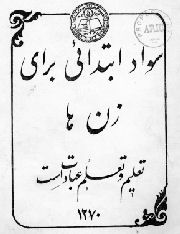 سواد ابتدائی برای
زن ها
تعلیم و تعلم عبادت است
۱۲۷۰